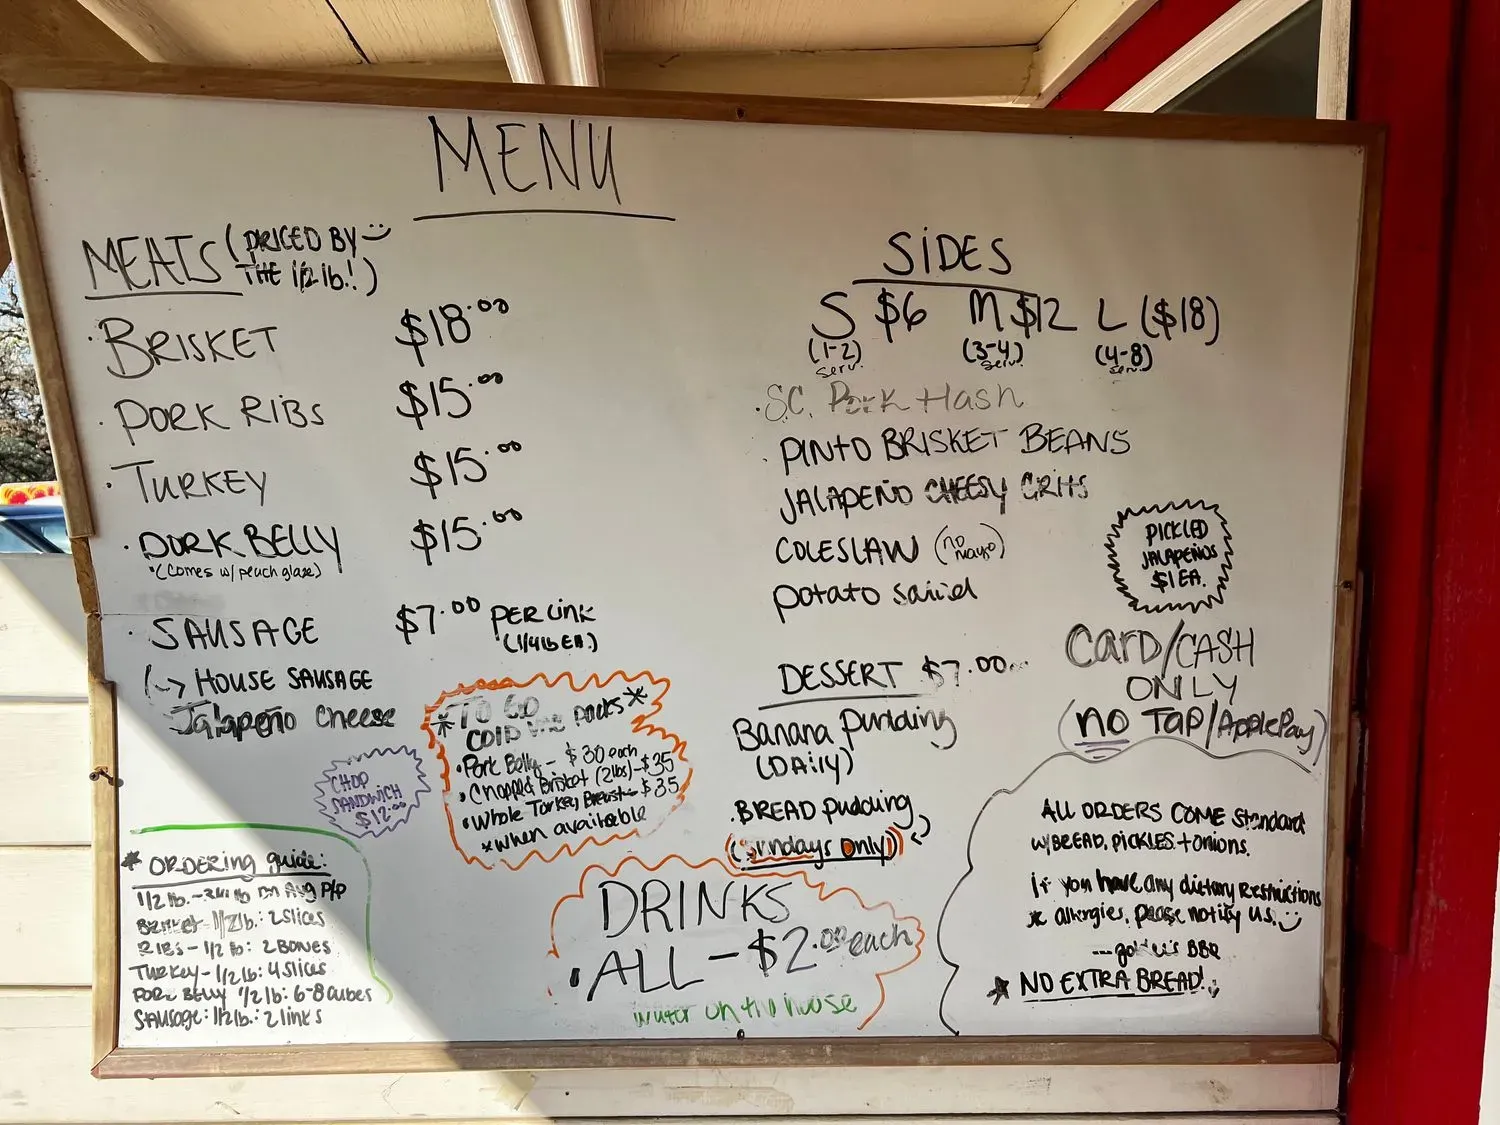 MENU
MEATS (PRICED BY
THE 1/2 lb.!)
· BRISKET $18.00
· PORK RIBS $15.00
· TURKEY $15.00
· PORK BELLY $15.00
*(comes w/ peach glaze)
· SAUSAGE $7.00 PER LINK
(1/4lb EA.)
HOUSE SAUSAGE
Jalapeño Cheese
CHOP
SANDWICH
$12.00
*TO GO
COLD packs*
· Pork Belly - $30 each
· Chopped Brisket (2lbs) - $35
· Whole Turkey Breast - $35
*when available
* ORDERING guide:
1/2 lb. - 3/4 lb on Avg P/P
Brisket - 1/2 lb.: 2 slices
RIBS - 1/2 lb: 2 BONES
TURKEY - 1/2 lb: 4 slices
PORK BELLY 1/2 lb: 6-8 cubes
SAUSAGE: 1/2 lb.: 2 links
SIDES
S $6 M $12 L ($18)
(1-2) (3-4) (4-8)
serv. serv. serv.
· S.C. Pork Hash
· PINTO BRISKET BEANS
JALAPEÑO CHEESY GRITS
COLESLAW (no mayo)
potato salad
PICKLED
JALAPEÑOS
$1 EA.
DESSERT $7.00
Banana pudding
(DAily)
· BREAD pudding
(Sundays Only)
DRINKS
· ALL - $2.00 each
water on the house
CARD/CASH
ONLY
(NO TAP/Apple Pay)
ALL ORDERS COME standard
w/BREAD, PICKLES + onions.
if you have any dietary restrictions
allergies, please notify us.
BBQ
* NO EXTRA BREAD!